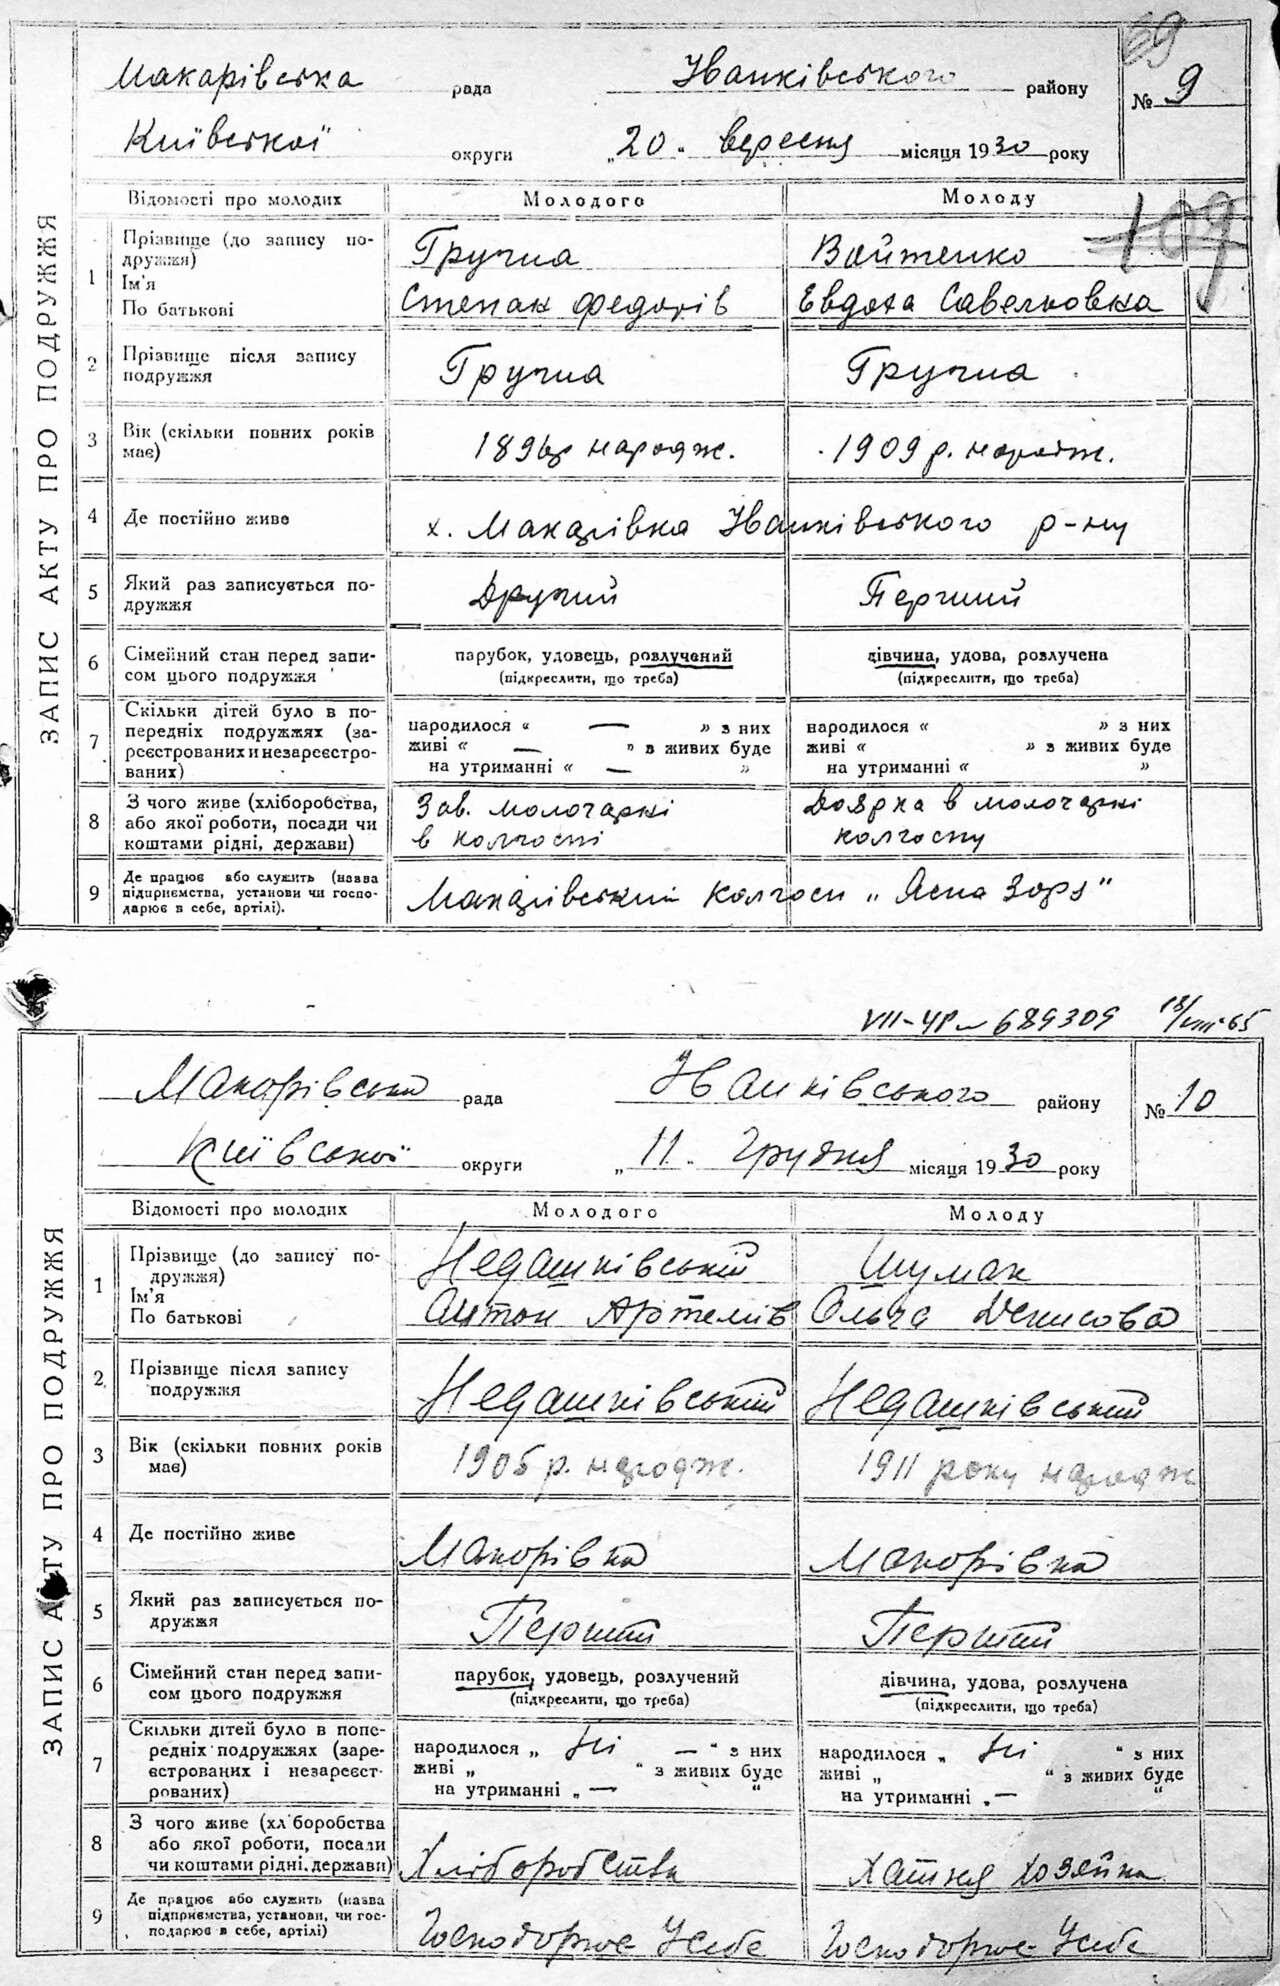 69
Макарівська рада Іванківського району № 9
Київської округи „20" вересня місяця 1930 року
ЗАПИС АКТУ ПРО ПОДРУЖЖЯ
Відомості про молодих Молодого Молоду
109
1 Прізвище (до запису подружжя) Гручна Войтенко
Ім'я
По батькові Степан Федорів Евдоха Савелиовна
2 Прізвище після запису подружжя Гручна Гручна
3 Вік (скільки повних років має) народж. 1909 р. народж.
4 Де постійно живе х. Макарівка Іванківського р-ну
5 Який раз записується подружжя Другий Перший
6 Сімейний стан перед записом цього подружжя парубок, удовець, розлучений дівчина, удова, розлучена
(підкреслити, що треба) (підкреслити, що треба)
7 Скільки дітей було в попередніх подружжях (зареєстрованих и незареєстрованих) народилося « — » з них народилося « » з них
живі « — » в живих буде живі « » в живих буде
на утриманні « — » на утриманні « »
8 З чого живе (хліборобства, або якої роботи, посади чи коштами рідні, держави) Зав. молочаркі Доярка в молочаркі
в колгоспі колгоспу
9 Де працює або служить (назва підприємства, установи чи господарює в себе, артілі). Макарівський колгосп „Ясна Зоря"
VII-УР № 689309 18/VIII-65
Макарівська рада Іванківського району № 10
Київської округи „11" Грудня місяця 1930 року
ЗАПИС АКТУ ПРО ПОДРУЖЖЯ
Відомості про молодих Молодого Молоду
1 Прізвище (до запису подружжя) Недашківський Шумак
Ім'я
По батькові Антон Артемів Ольга Денисова
2 Прізвище після запису подружжя Недашківський Недашківський
3 Вік (скільки повних років має) 1905 р. народж. 1911 року народж
4 Де постійно живе Макорівка Макорівка
5 Який раз записується подружжя Перший Перший
6 Сімейний стан перед записом цього подружжя парубок, удовець, розлучений дівчина, удова, розлучена
(підкреслити, що треба) (підкреслити, що треба)
7 Скільки дітей було в попередніх подружжях (зареєстрованих і незареєстрованих) народилося „ Ні — “ з них народилося „ Ні “ з них
живі „ “ з живих буде живі „ “ з живих буде
на утриманні „ — “ на утриманні „ — “
8 З чого живе (хліборобства або якої роботи, посади чи коштами рідні, держави) Хліборобства Хатня хозяйка
9 Де працює або служить (назва підприємства, установи, чи господарює в себе, артілі) Господорює Усебе Господорює Усебе